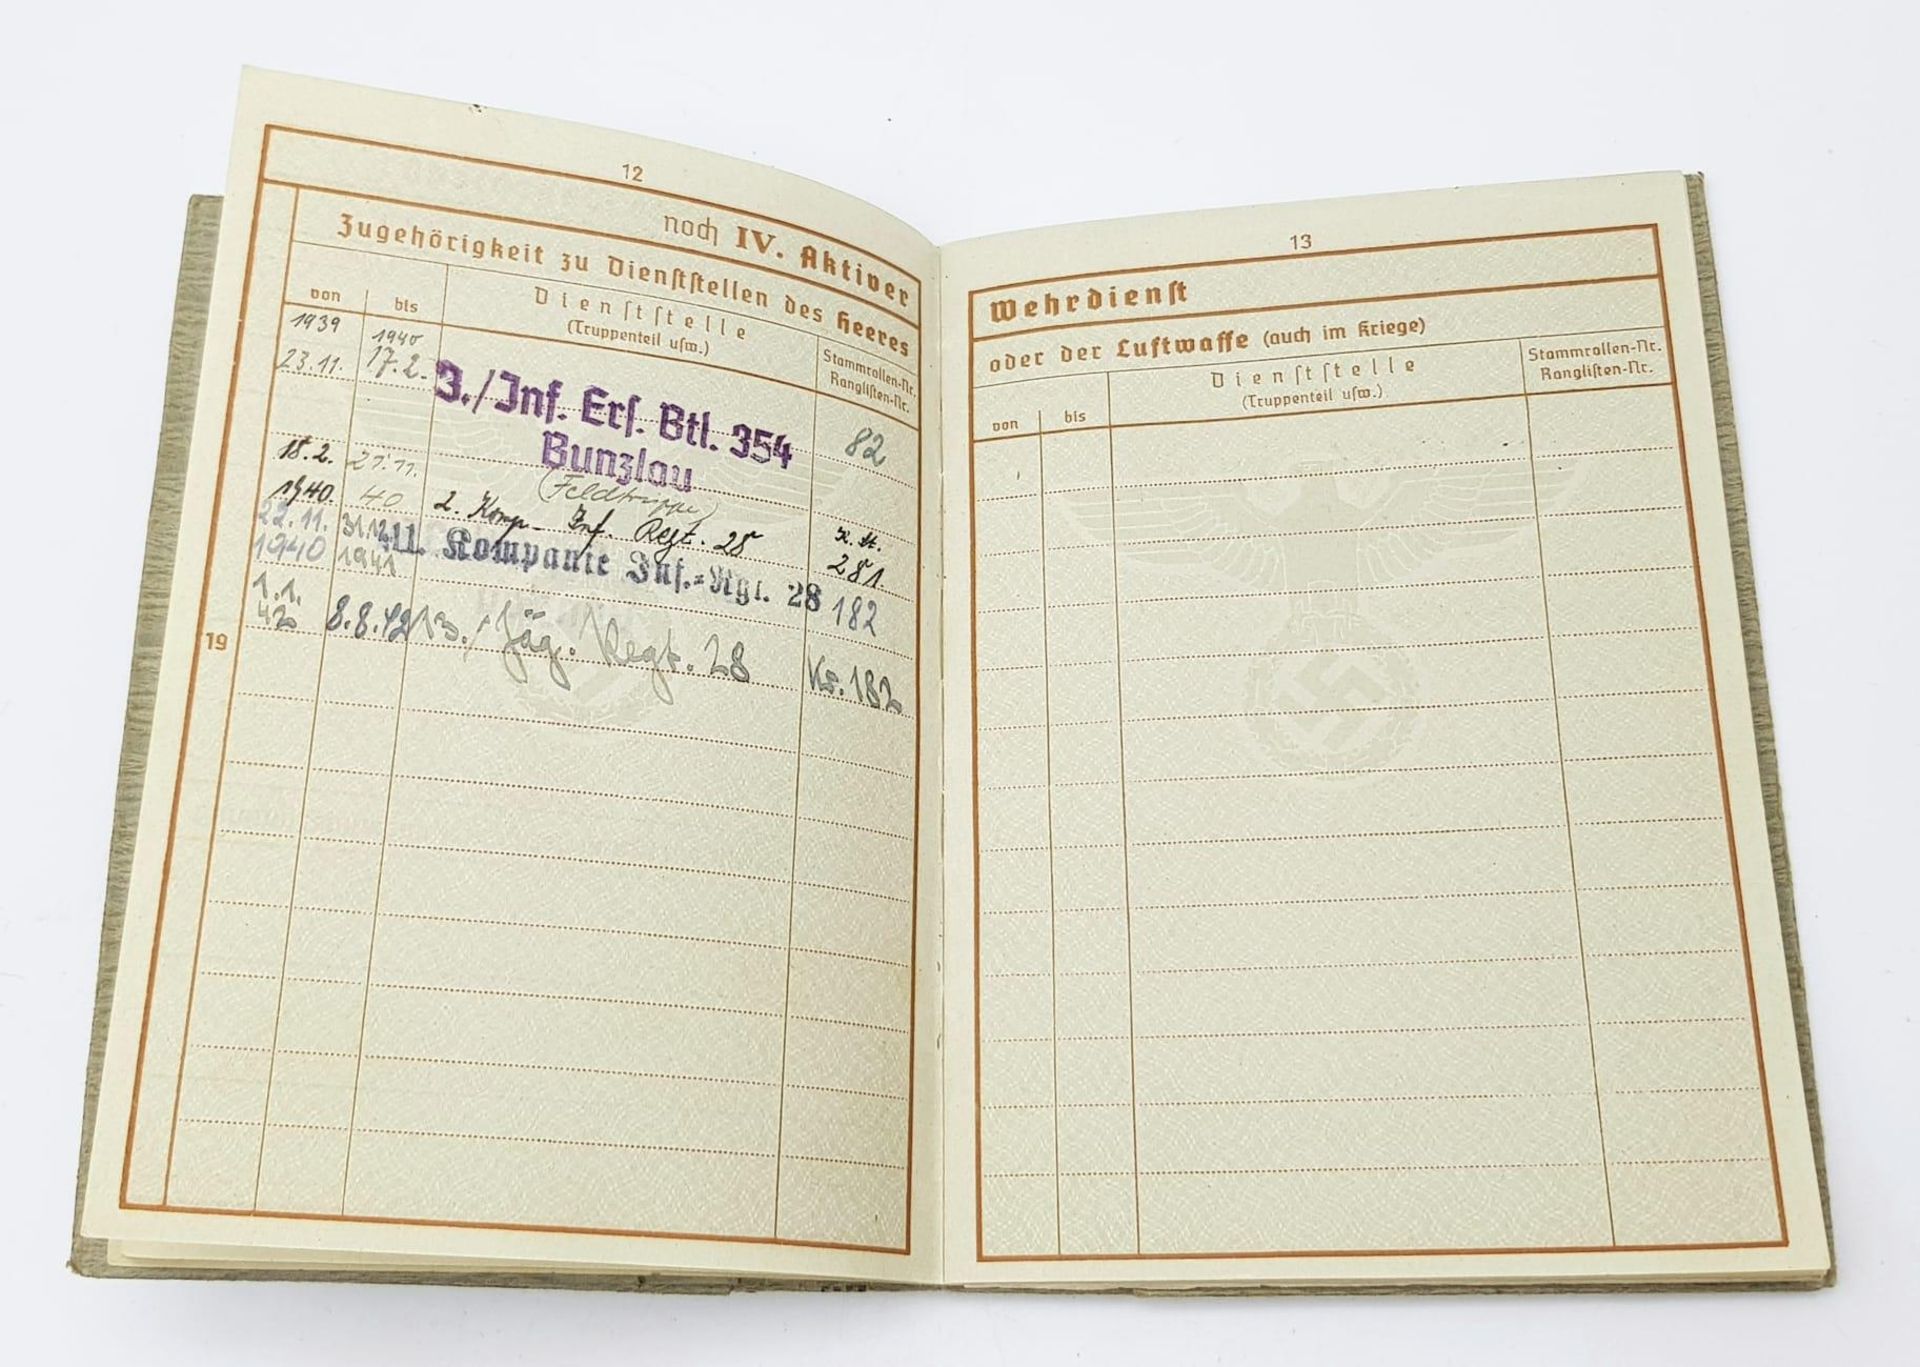 12
noch IV. Aktiver
Zugehörigkeit zu Dienststellen des Heeres
von
bis
Dienststelle
(Truppenteil usw.)
Stammrollen-Nr.
Ranglisten-Nr.
1939
23.11.
1940
17.2.
3./Inf. Ers. Btl. 354
Bunzlau
82
18.2.
1940
21.11.
40
(Feldtruppe)
2. Komp. Inf. Regt. 28
281.
22.11.
1940
31.12.
1941
Kompanie Inf.-Rgt. 28
182
1.1.
42
8.8.42
13./Jäg. Regt. 28
Kr. 182
19
13
Wehrdienst
oder der Luftwaffe (auch im Kriege)
von
bis
Dienststelle
(Truppenteil usw.)
Stammrollen-Nr.
Ranglisten-Nr.